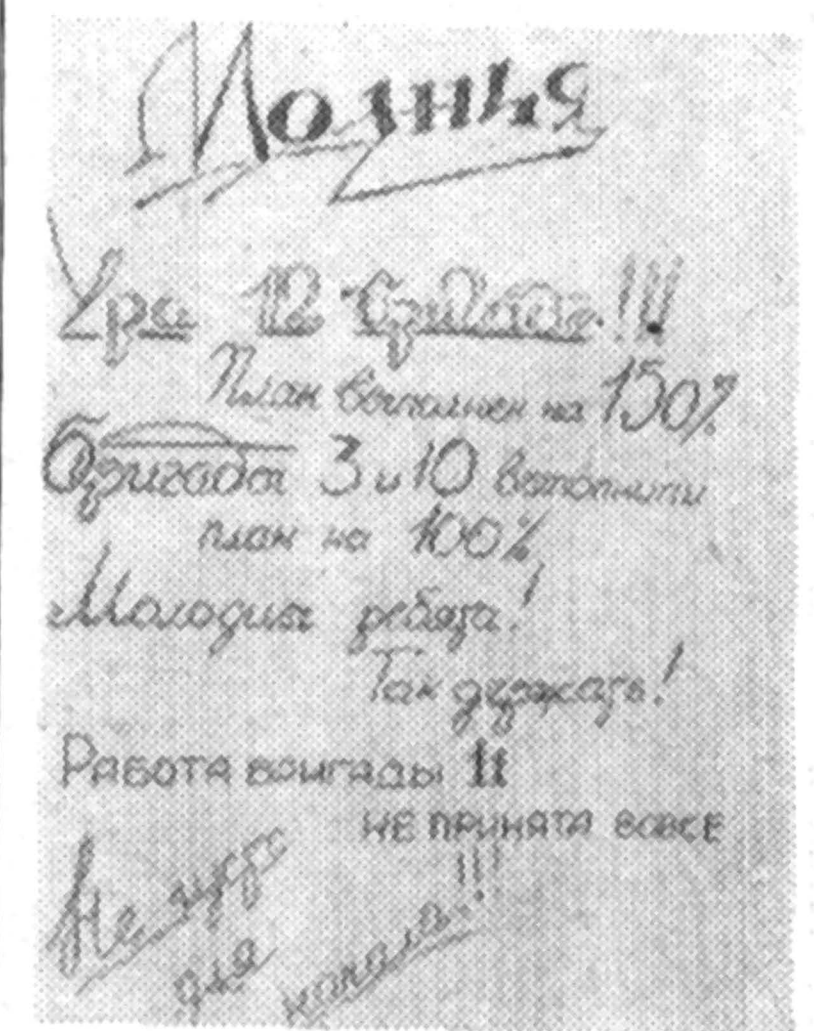 Молнья
Ура 12 бригаде!!!
План выполнен на 150%
Бригады 3 и 10 выполнили
план на 100%
Молодцы ребята!
Так держать!
РАБОТА БРИГАДЫ 11
НЕ ПРИНЯТА ВОВСЕ
Не густо
для
начала!!!